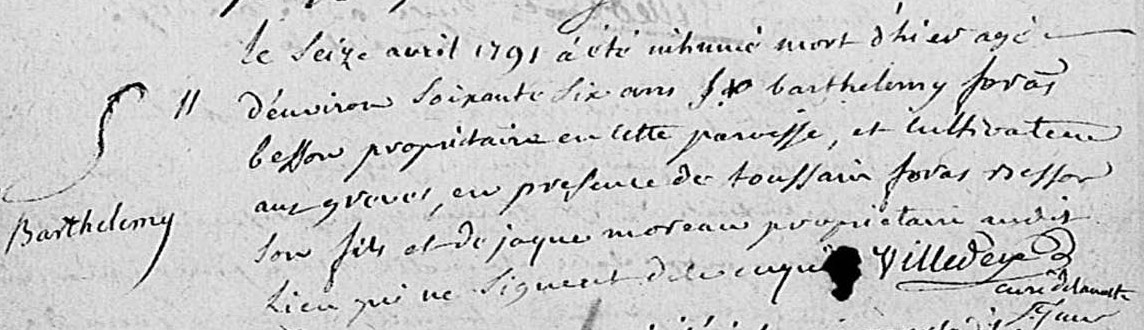 S
11
Barthelemy
le seize avril 1791 a été inhumé mort d'hier agé
d'environ soixante six ans barthelemy foras
besson propriétaire en cette paroisse, et cultivateur
aux greves, en presence de toussain foras besson
son fils et de jaque moreau propriétaire audit
lieu qui ne signent de ce enquis Villedey
curé de